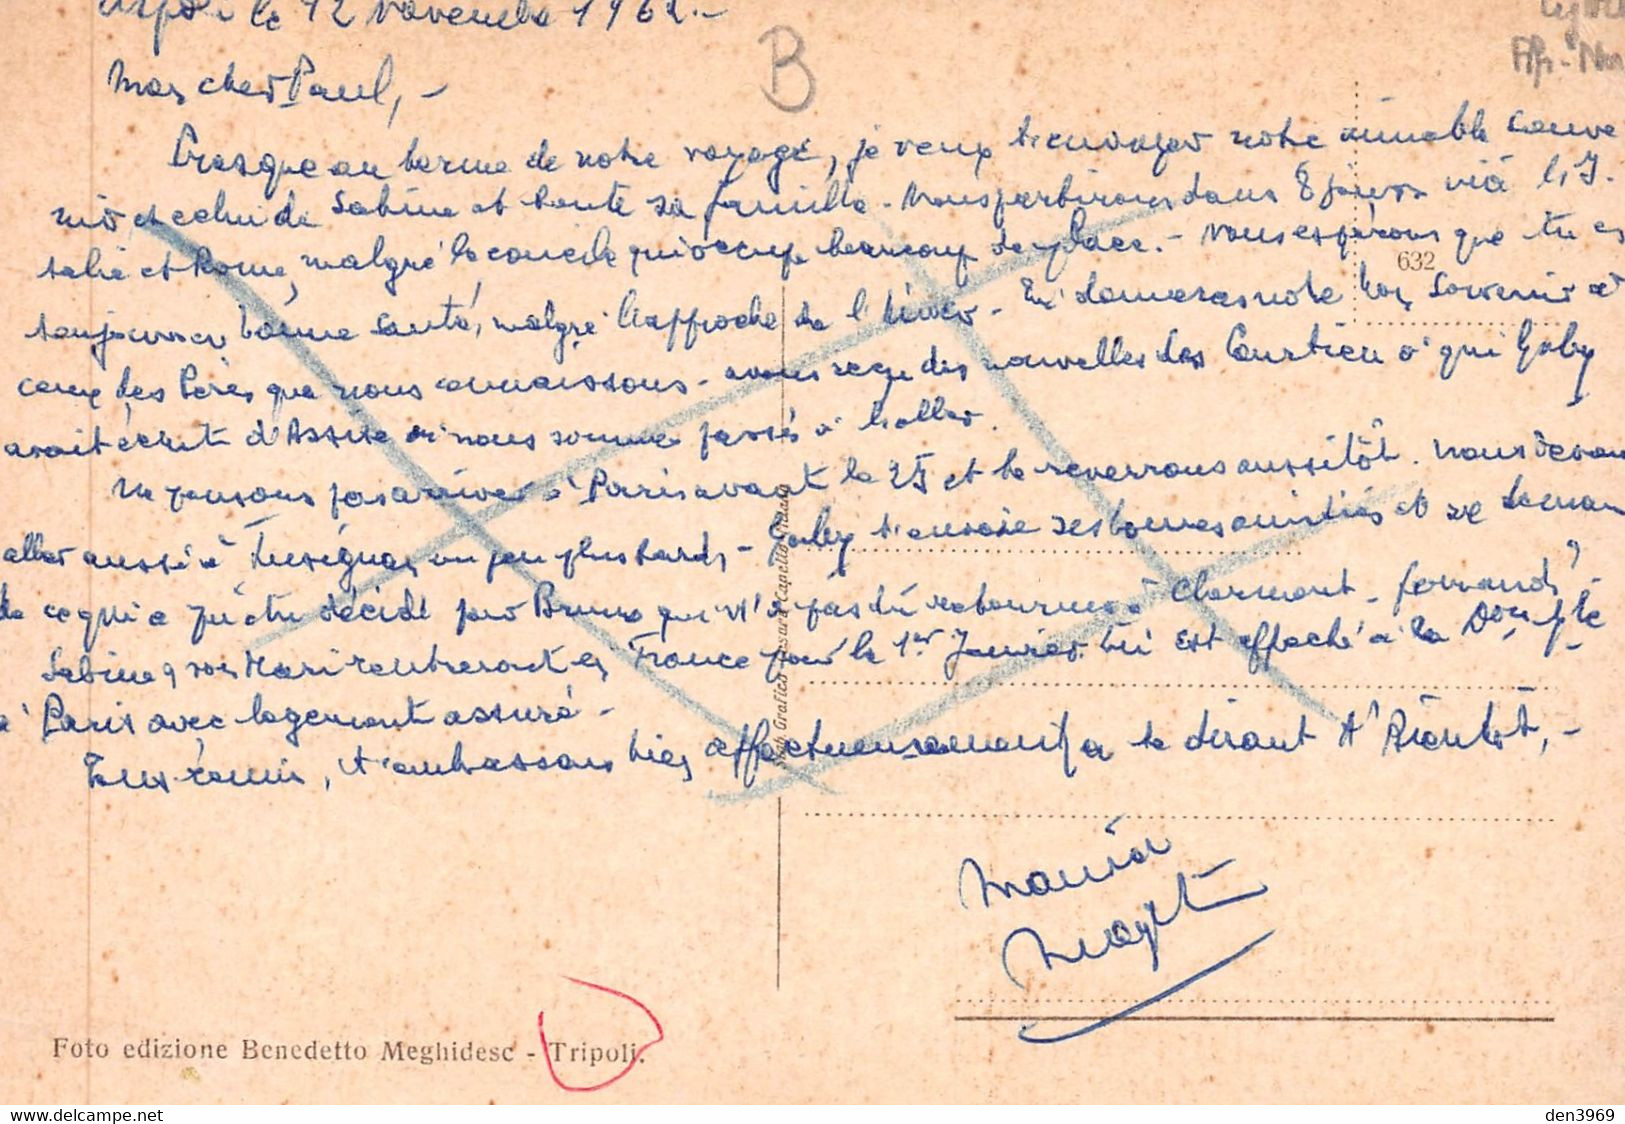 le 12 novembre 1962.-
B
Mon cher Paul, -
Presque au terme de notre voyage, je veux t'envoyer notre aimable souve
nir et celui de Sabine et toute sa famille - Nous partirons dans 8 jours via l'I.
talie et Rome, malgré le concile qui occupe beaucoup de place. - Nous espérons que tu es
632
toujours en bonne santé, malgré l'approche de l'hiver - donneras notre bon souvenir à
ceux des Pères que nous connaissons - avons reçu des nouvelles des à qui Gaby
avait écrit d'Assise où nous sommes passés à l'aller.
Ne pensons pas arriver à Paris avant le 25 et te reverrons aussitôt. Nous devons
aller aussi à un peu plus tard - Gaby t'envoie ses bonnes amitiés et se deman
de ce qui a été décidé pour Bruno qui n'a pas dû retourner à Clermont - Ferrand ?
Sabine & son Mari rentreront en France pour le 1er Janvier. Lui est affecté à la
à Paris avec logement assuré -
Tous réunis, t'embrassons bien affectueusement en te disant A' Bientôt, -
Stab. Grafico Cesare Capello Milano
Foto edizione Benedetto Meghidesc - Tripoli.
delcampe.net
den3969